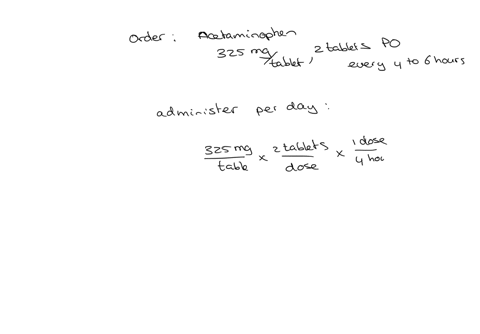 Order: Acetaminophen
325 mg/tablet, 2 tablets PO
every 4 to 6 hours
administer per day:
325 mg/table × 2 tablets/dose × 1 dose/4 hou